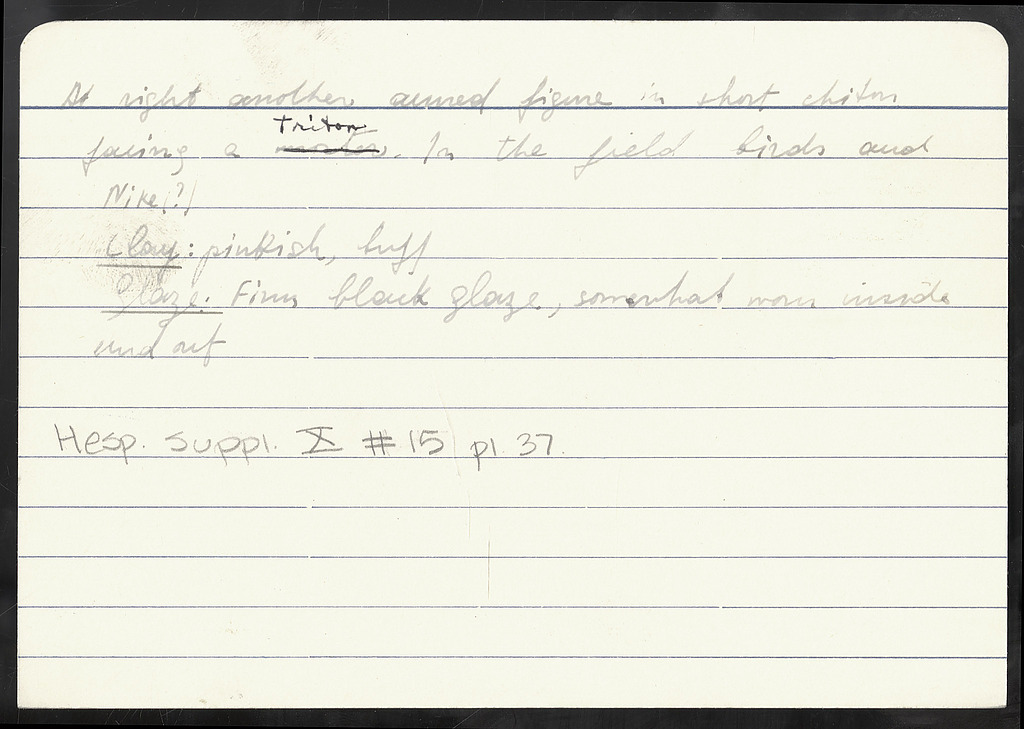 At right another armed figure in short chiton
Triton
facing a. In the field birds and
Nike(?)
Clay: pinkish, buff
Glaze. Firm black glaze, somewhat worn inside
and out
Hesp. Suppl. X #15 pl. 37.